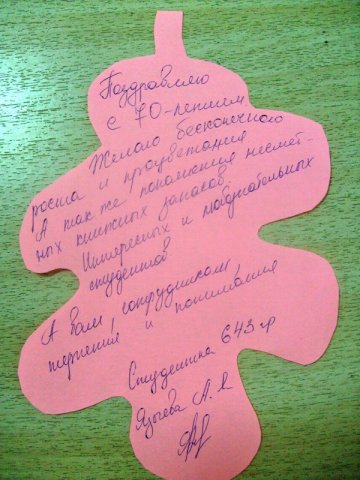 Поздравляю
с 70-летием
Желаю бесконечного
роста и процветания
А так же пополнения несмет-
ных книжных запасов.
Интересных и любознательных
студентов
А вам, сотрудникам,
терпения, и понимания
Студентка 643 гр
А. А